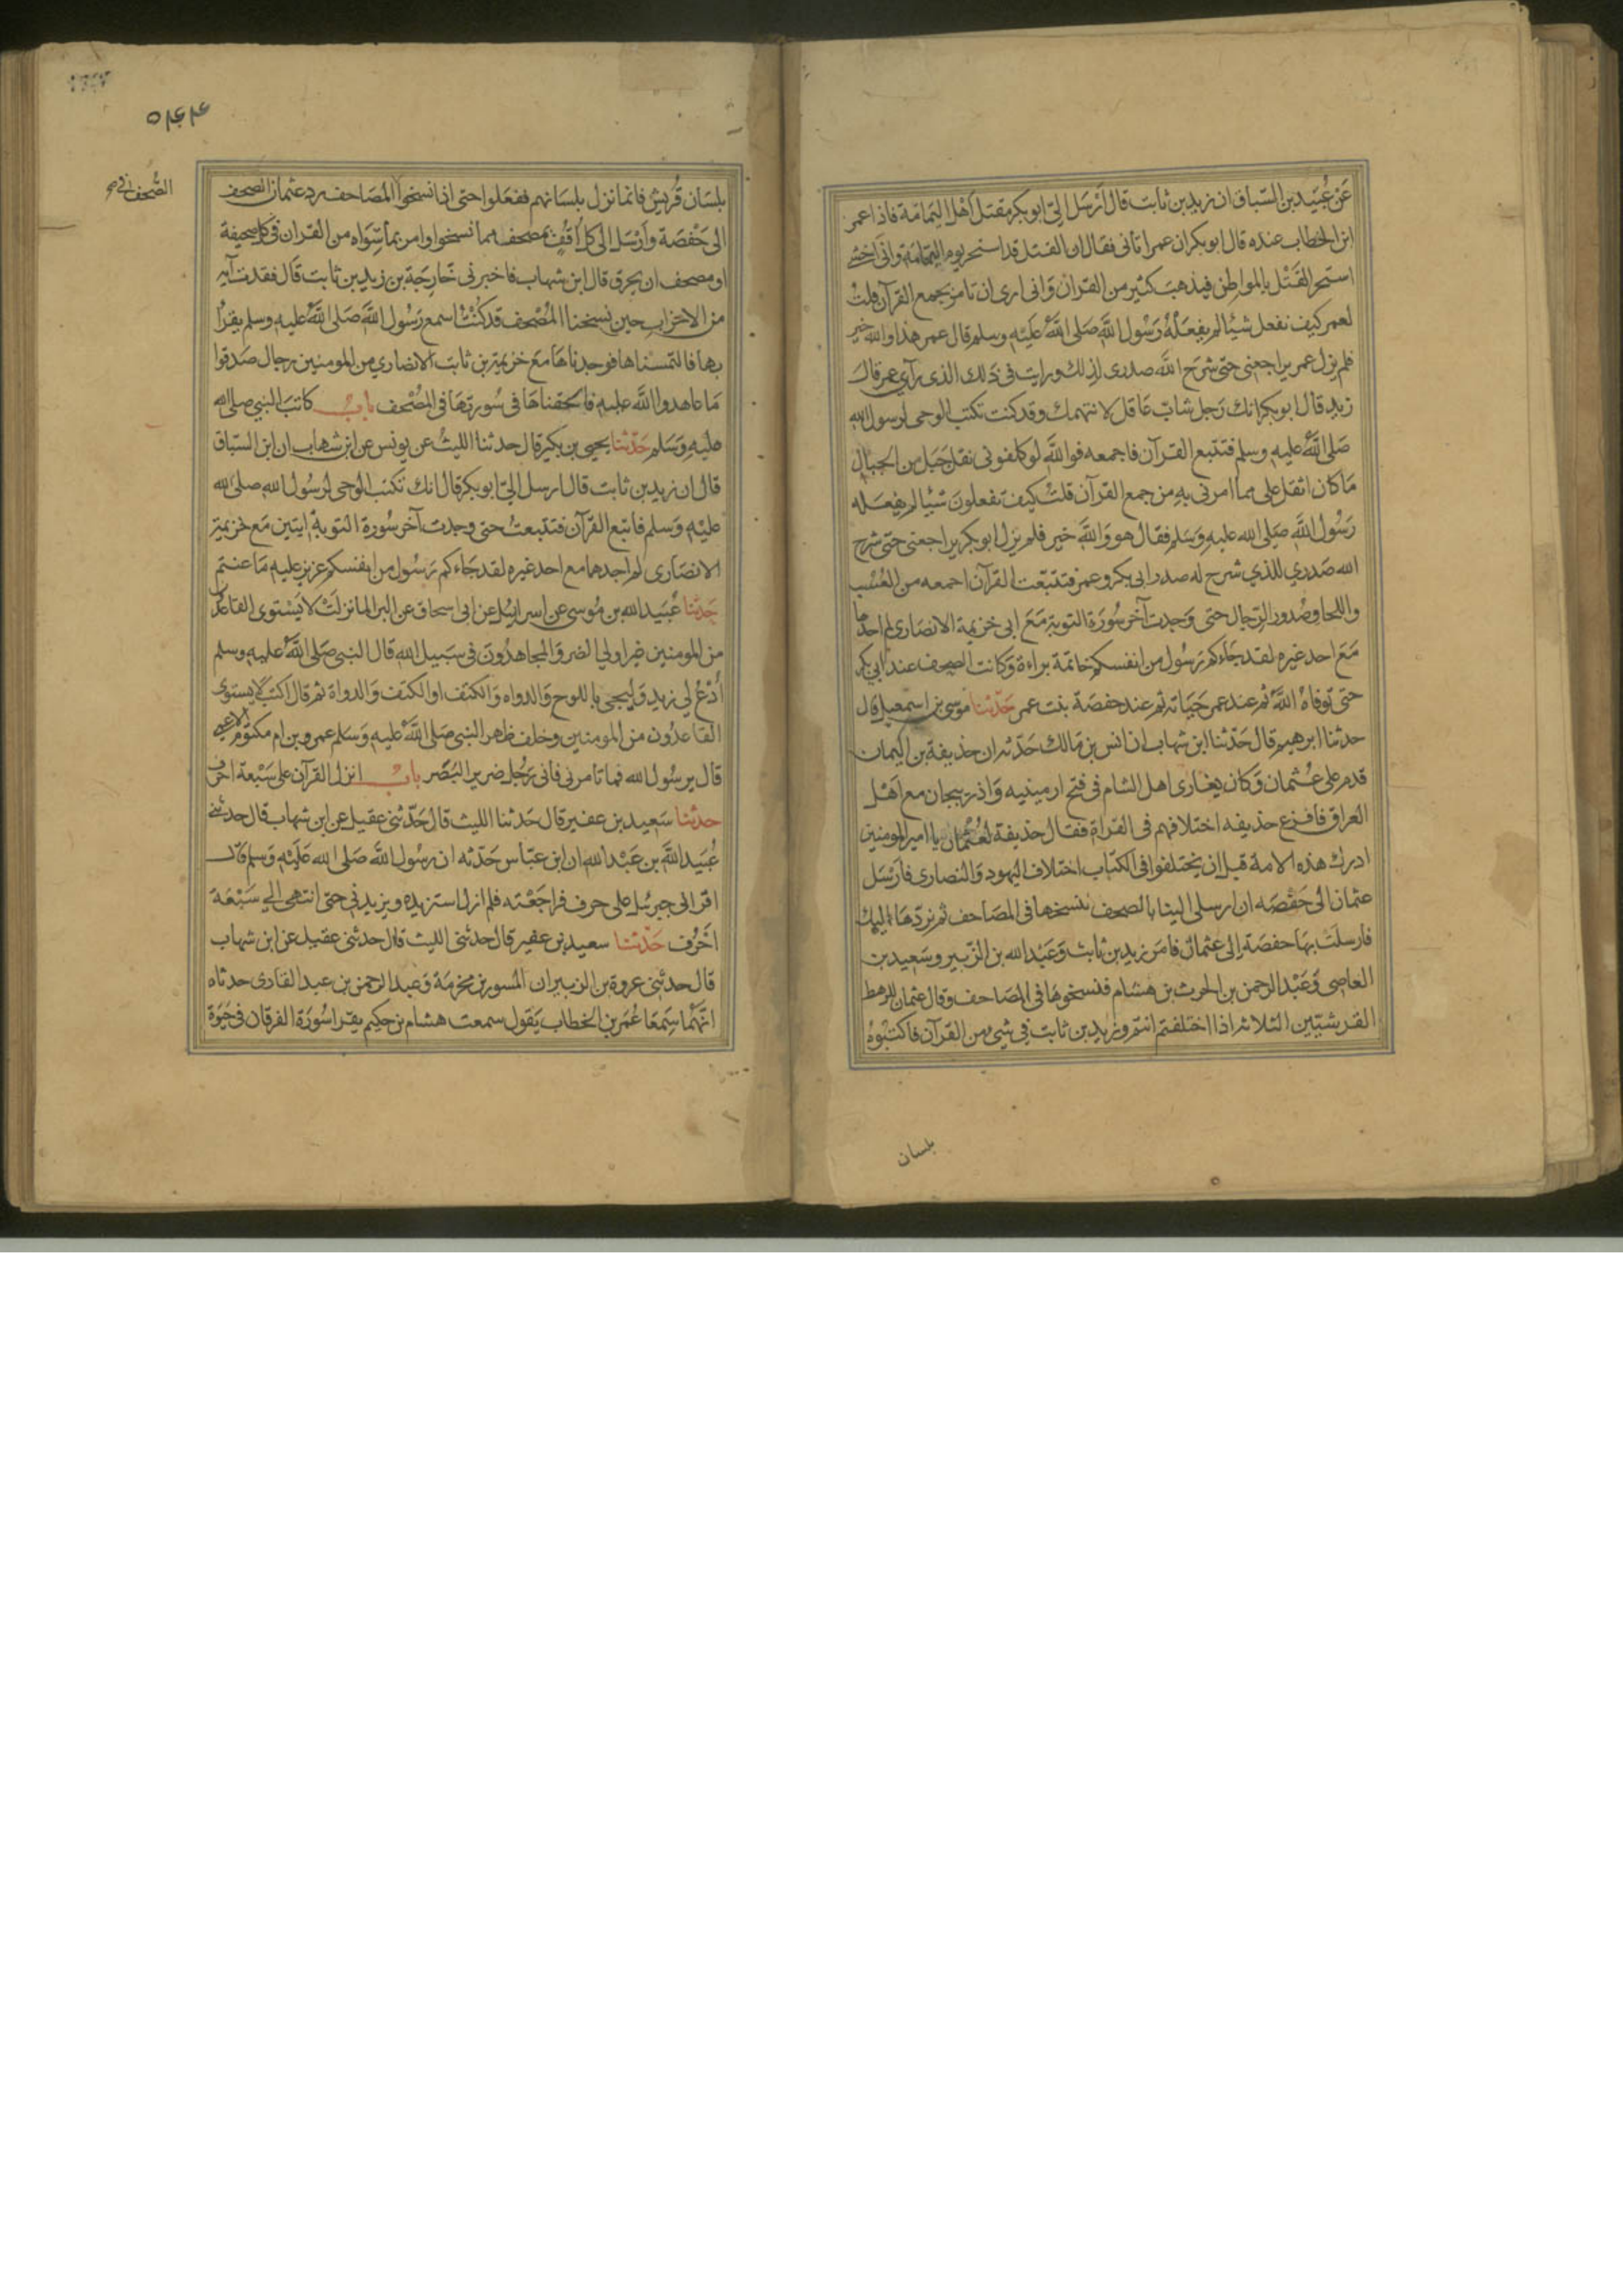 عَنْ عُبَيد بن السّباق ان زيد بن ثابت قال اَرْسَل اليّ ابو بكر مقتل اَهْل اليَمامَة فاذا عمر
ابن الخطاب عنده قال ابو بكر ان عمر اتانى فقال ان القتل قد استحر يوم اليمامة وانّى اخشى
استحر القَتْل بالمواطن فيذهبَ كثير من القران وَانى ارى ان تامر بجمع القرآن قلتُ
لعمر كيف نفعل شيئا لم يفعَلْهُ رَسُول اللَّه صَلى اللَّهُ عَلَيْهِ وسلم قال عمر هذا والله خير
فلم يزل عمر يراجعنى حتى شرَح اللَّه صدرى لذلك ورايت فى ذلك الذى رآى عمر قال
زيد قال ابو بكر انك رَجل شابّ عَاقل لا نتهمك وقد كنت تكتب الوحى لرسول الله
صَلى اللَّهُ عليه وسلم فتتبع القرآن فاجمعه فوا اللَّه لو كلفونى نقل جَبَل من الجبال
مَا كان اثقل على مما امرنى به من جمع القرآن قلتُ كيف تفعلونَ شيئا لم يفعَله
رَسُول اللَّه صَلى الله عليه وَسَلم فقال هو وَاللَّه خير فلم يزل ابو بكر يراجعنى حتى شرح
الله صَدري للذي شرح له صدر ابى بكر وعمر فتتبّعت القرآن اجمعه من العُسُب
واللخاف وصُدور الرّجال حتى وَجدت آخر سُورَة التوبة مَعَ ابى خزيمة الانصارى لم اجدها
مَعَ احد غيره لقد جَاءكم رَسُول من انفسكم خاتمة براءة وَكانت الصحف عند ابى بكر
حتى تَوفاهُ اللَّهُ ثم عند عمر حَيَاته ثم عند حفصَة بنت عمر حَدّثنا موسى بن اسمعيل قال
حدثنا ابرهيم قال حَدّثنا ابن شهاب ان انس بن مَالك حَدّثه ان حذيفة بن اليمان
قدم على عُثمان وَكان يغازى اهل الشام فى فتح ارمينيه وَاذربيجان مع اَهْل
العراق فافزع حذيفه اختلافهم فى القراة فقال حذيفة لعُثمان يا امير المومنين
ادرك هذه الامة قبل ان يختلفوا فى الكتاب اختلاف اليهود وَالنصارى فارْسَل
عثمان الى حَفْصَه ان ارسلى الينا بالصحف ننسخها فى المصَاحف ثم نردّها اليك
فارسلَت بهَا حفصَة إلى عثمان فامَر زيد بن ثابت وَعَبْد الله بن الزبير وسَعِيد بن
العاصى وَعَبْد الرحمن بن الحرث بن هشام فنسخوهَا فى المصَاحف وقال عثمان للرهط
القرشيّين الثلاثة اذا اختلفتم انتم وزيد بن ثابت في شيئ من القرآن فاكتبُوهُ
بلسان
۵۶۴۴
الصُّحف
بلسَان قُريش فانما نزل بلسَانهم ففعَلوا حتى اذا نسخوا المصَاحف رد عثمان الصحف
الى حَفْصَة وَاَرْسَل الى كل اُفُق بمصحف مما نسخوا وامر بما سِوَاه من القران فى كل صحيفة
او مصحف ان يحرق قال ابن شهاب فاخبرنى خَارجَة بن زيد بن ثابت قَال فقدت آية
من الاحزاب حين نسخنا المصْحف قد كنْتُ اسمع رَسُول اللَّه صَلى اللَّهُ عليه وسلم يقرأُ
بها فالتمسناها فوجدناهَا مَعَ خزيمة بن ثابت الانصاري من المومنين رجال صَدقوا
مَا عاهدوا اللَّه عليه فالحقناهَا فى سُورتهَا فى المُصْحف باب كاتبَ النبي صلى الله
عليه وَسَلم حَدّثنا يحيى بن بكير قال حدثنا الليثُ عن يونس عن ابن شهاب ان ابن السبّاق
قال ان زيد بن ثابت قال ارسل اليّ ابو بكر قال انك تكتب الوحى لرسُول الله صلى الله
عليْه وَسلم فاتبع القرآن فتتبعتُ حتى وجدت آخر سُورة التوبة ايتين مَع خزيمة
الانصَارى لم اجدهما مع احد غيره لقد جَاءكم رَسُول من انفسكم عزيز عليه مَا عنتم
حَدّثنا عُبَيد الله بن مُوسى عن اسرائيل عن ابى اسحاق عن البرا لما نزلَتْ لا يَسْتوى القاعدُونَ
من المومنين غير اولي الضرر وَالمجاهدُونَ فى سَبيل الله قال النبى صَلى اللَّهُ عليه وسلم
اُدْعُ لي زيد وَليجى باللوح وَالدواه وَالكتف او الكتف وَالدواة ثم قال اكتب لا يستوى
القَاعدُون من المومنين وخلف ظهر النبى صَلى اللَّهُ عليه وَسَلم عمرو بن ام مكتوم الاعمى
قال يرسُول الله فما تامرنى فانى رَجُل ضرير البَصَر بابُ انزل القرآن على سَبْعة احرف
حدثنا سَعِيد بن عفير قال حَدثنا الليث قال حَدّثنى عقيل عن ابن شهاب قال حدثنى
عُبَيد اللَّه بن عَبْد الله ان ابن عبّاس حَدّثه ان رسُول اللَّه صَلى الله عَليْه وَسلم قال
اقرانى جبرئيل على حرف فراجَعْته فلم ازل استزيده ويزيدني حتى انتهى الي سَبْعَة
اَحْرُف حَدّثنا سعيد بن عفير قال حدثنى الليث قال حدثنى عقيل عن ابن شهاب
قال حدثنى عروة بن الزبير ان المسور بن مخرمَة وَعبد الرحمن بن عبد القارى حدثاه
انهُما سَمعَا عُمَر بن الخطاب يَقول سمعت هشام بن حكيم يقرا سُورَة الفرقان فى حَيَوة